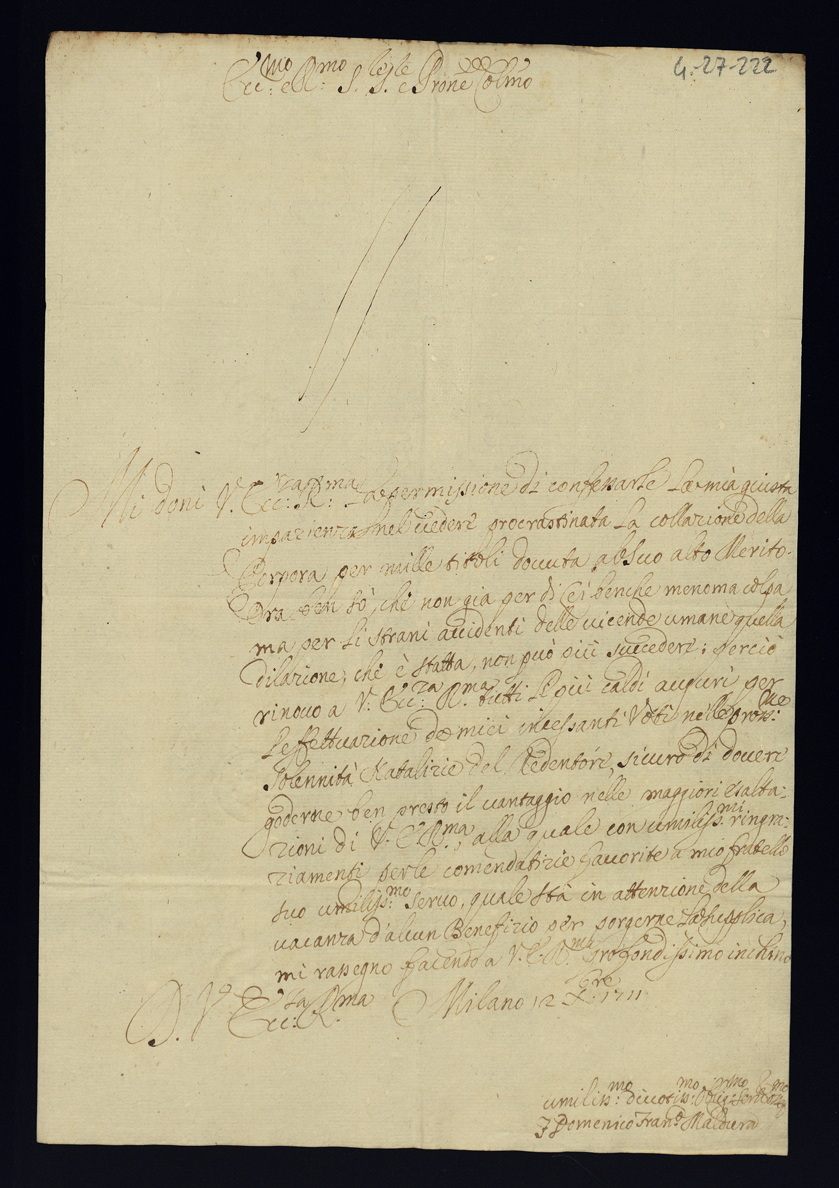 4-27-222
Ecc:mo e R:mo S. S. e Prone Colmo
Mi doni V. Ecc:za R:ma la permissione di confessarle la mia giusta
impazienza nel vedere procrastinata la collazione della
Porpora per mille titoli dovuta al suo alto Merito.
Ora ben sò, che non gia per di Lei benche menoma colpa
ma per li strani accidenti delle vicende umane quella
dilazione, che è statta, non può più succedere; perciò
rinovo a V. Ecc:za R:ma tutti li più caldi auguri per
l'effettuazione de miei incessanti Voti nelle pross:me
solennità Natalizie del Redentore, sicuro di dovere
goderne ben presto il vantaggio nelle maggiori esalta:
zioni di V. E. R:ma, alla quale con umiliss:mi ringra:
ziamenti per le comendatizie favorite a mio fratello
suo umiliss:mo servo, quale stà in attenzione della
vacanza d'alcun Benefizio per porgerne la supplica,
mi rassegno facendo a V. E. R:ma profondissimo inchino
D. V. Ecc:za R:ma Milano 12 Xbre 1711
umiliss:mo divotiss:mo
F Domenico Fran:o